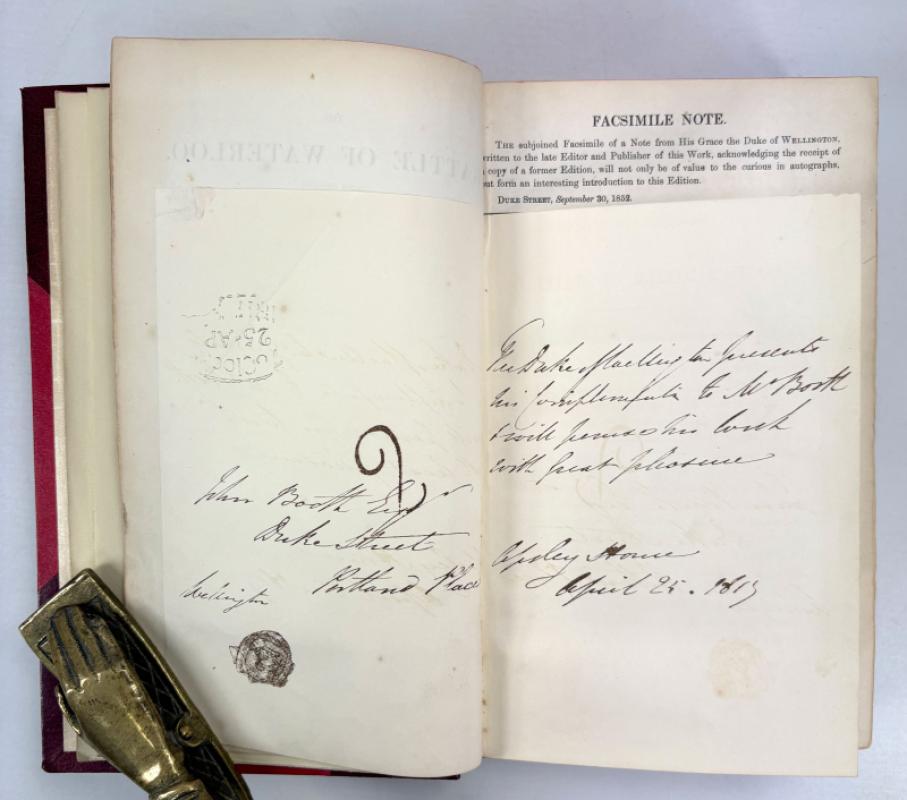 ATTLE OF WATERLOO.
25·AP
John Booth Esqr
Duke Street
Portland Place
Wellington
FACSIMILE NOTE.
THE subjoined Facsimile of a Note from His Grace the Duke of WELLINGTON,
written to the late Editor and Publisher of this Work, acknowledging the receipt of
a copy of a former Edition, will not only be of value to the curious in autographs,
but form an interesting introduction to this Edition.
DUKE STREET, September 30, 1852.
The Duke of Wellington presents
his Compliments to Mr Booth
& will peruse his Work
with great pleasure
Apsley House
April 25. 1817